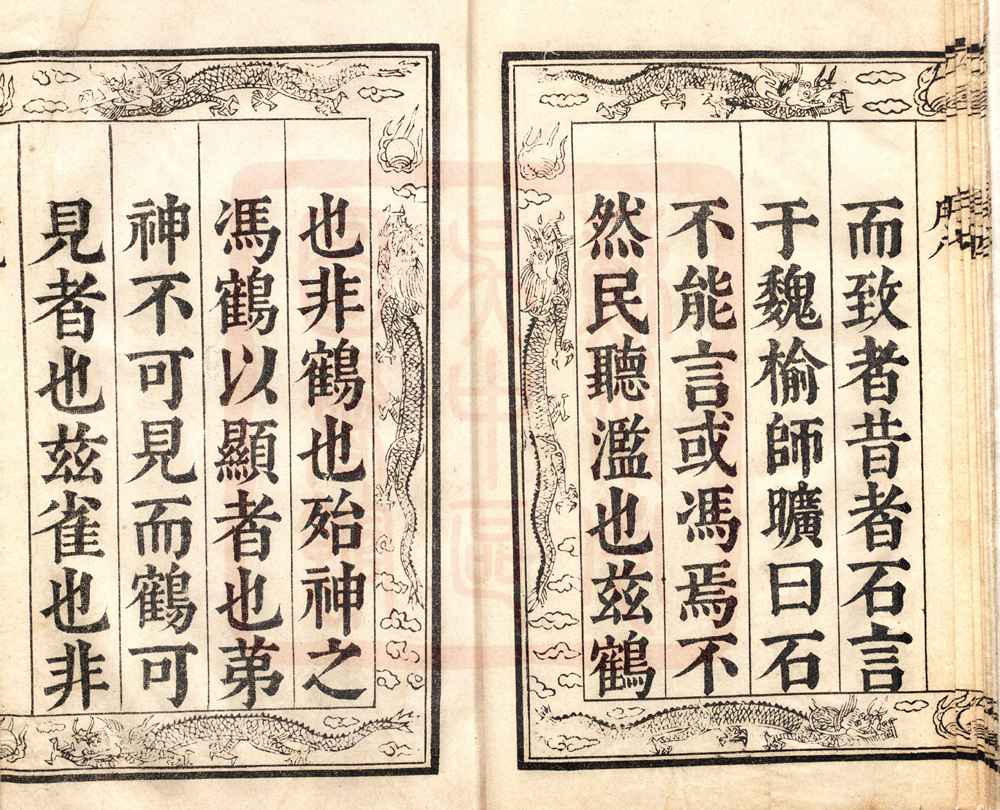 而致者昔者石言
于魏榆師曠曰石
不能言或馮焉不
然民聽濫也茲鶴
也非鶴也殆神之
馮鶴以顯者也苐
神不可見而鶴可
見者也茲雀也非